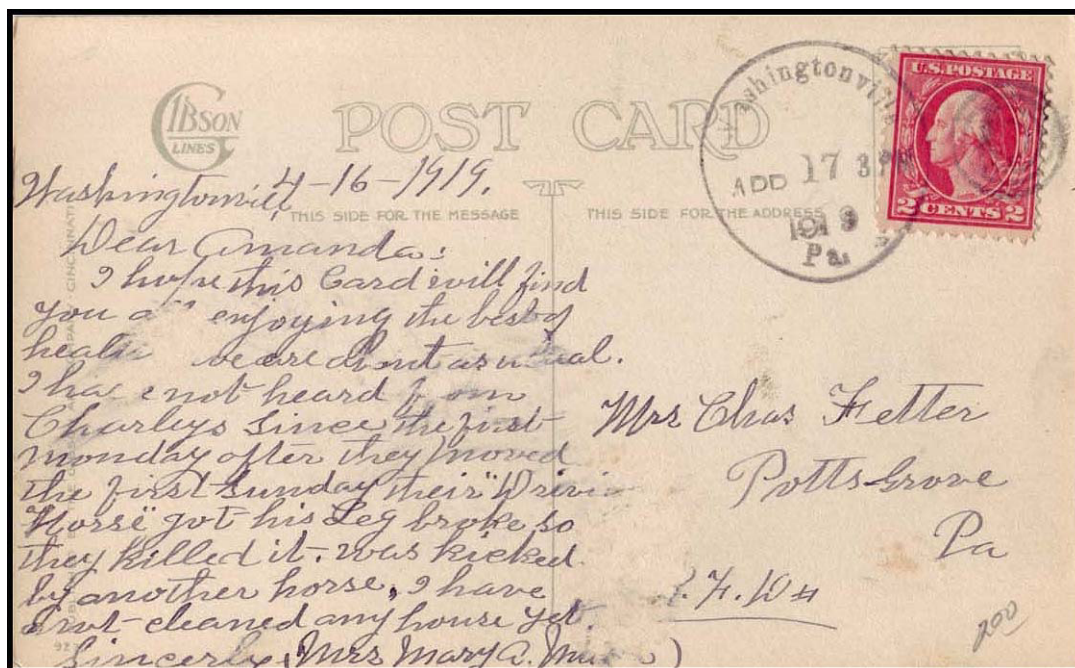 GIBSON
LINES
POST CARD
Washingtonvill, 4-16-1919.
THIS SIDE FOR THE MESSAGE
THIS SIDE FOR THE ADDRESS
Washingtonville
17 3 PM
1919
Pa.
U.S. POSTAGE
2 CENTS 2
Dear Amanda:
I hope this Card will find
you all enjoying the best of
health we are about as usual.
I have not heard from
Charleys since the first
monday after they moved
the first Sunday their "Drivi
Horse" got his Leg broke so
they killed it. was kicked
by another horse, I have
not cleaned any house yet.
Sincerely, Mrs Mary A.
Mrs Chas Fetter
Potts Grove
Pa
F. D #
200